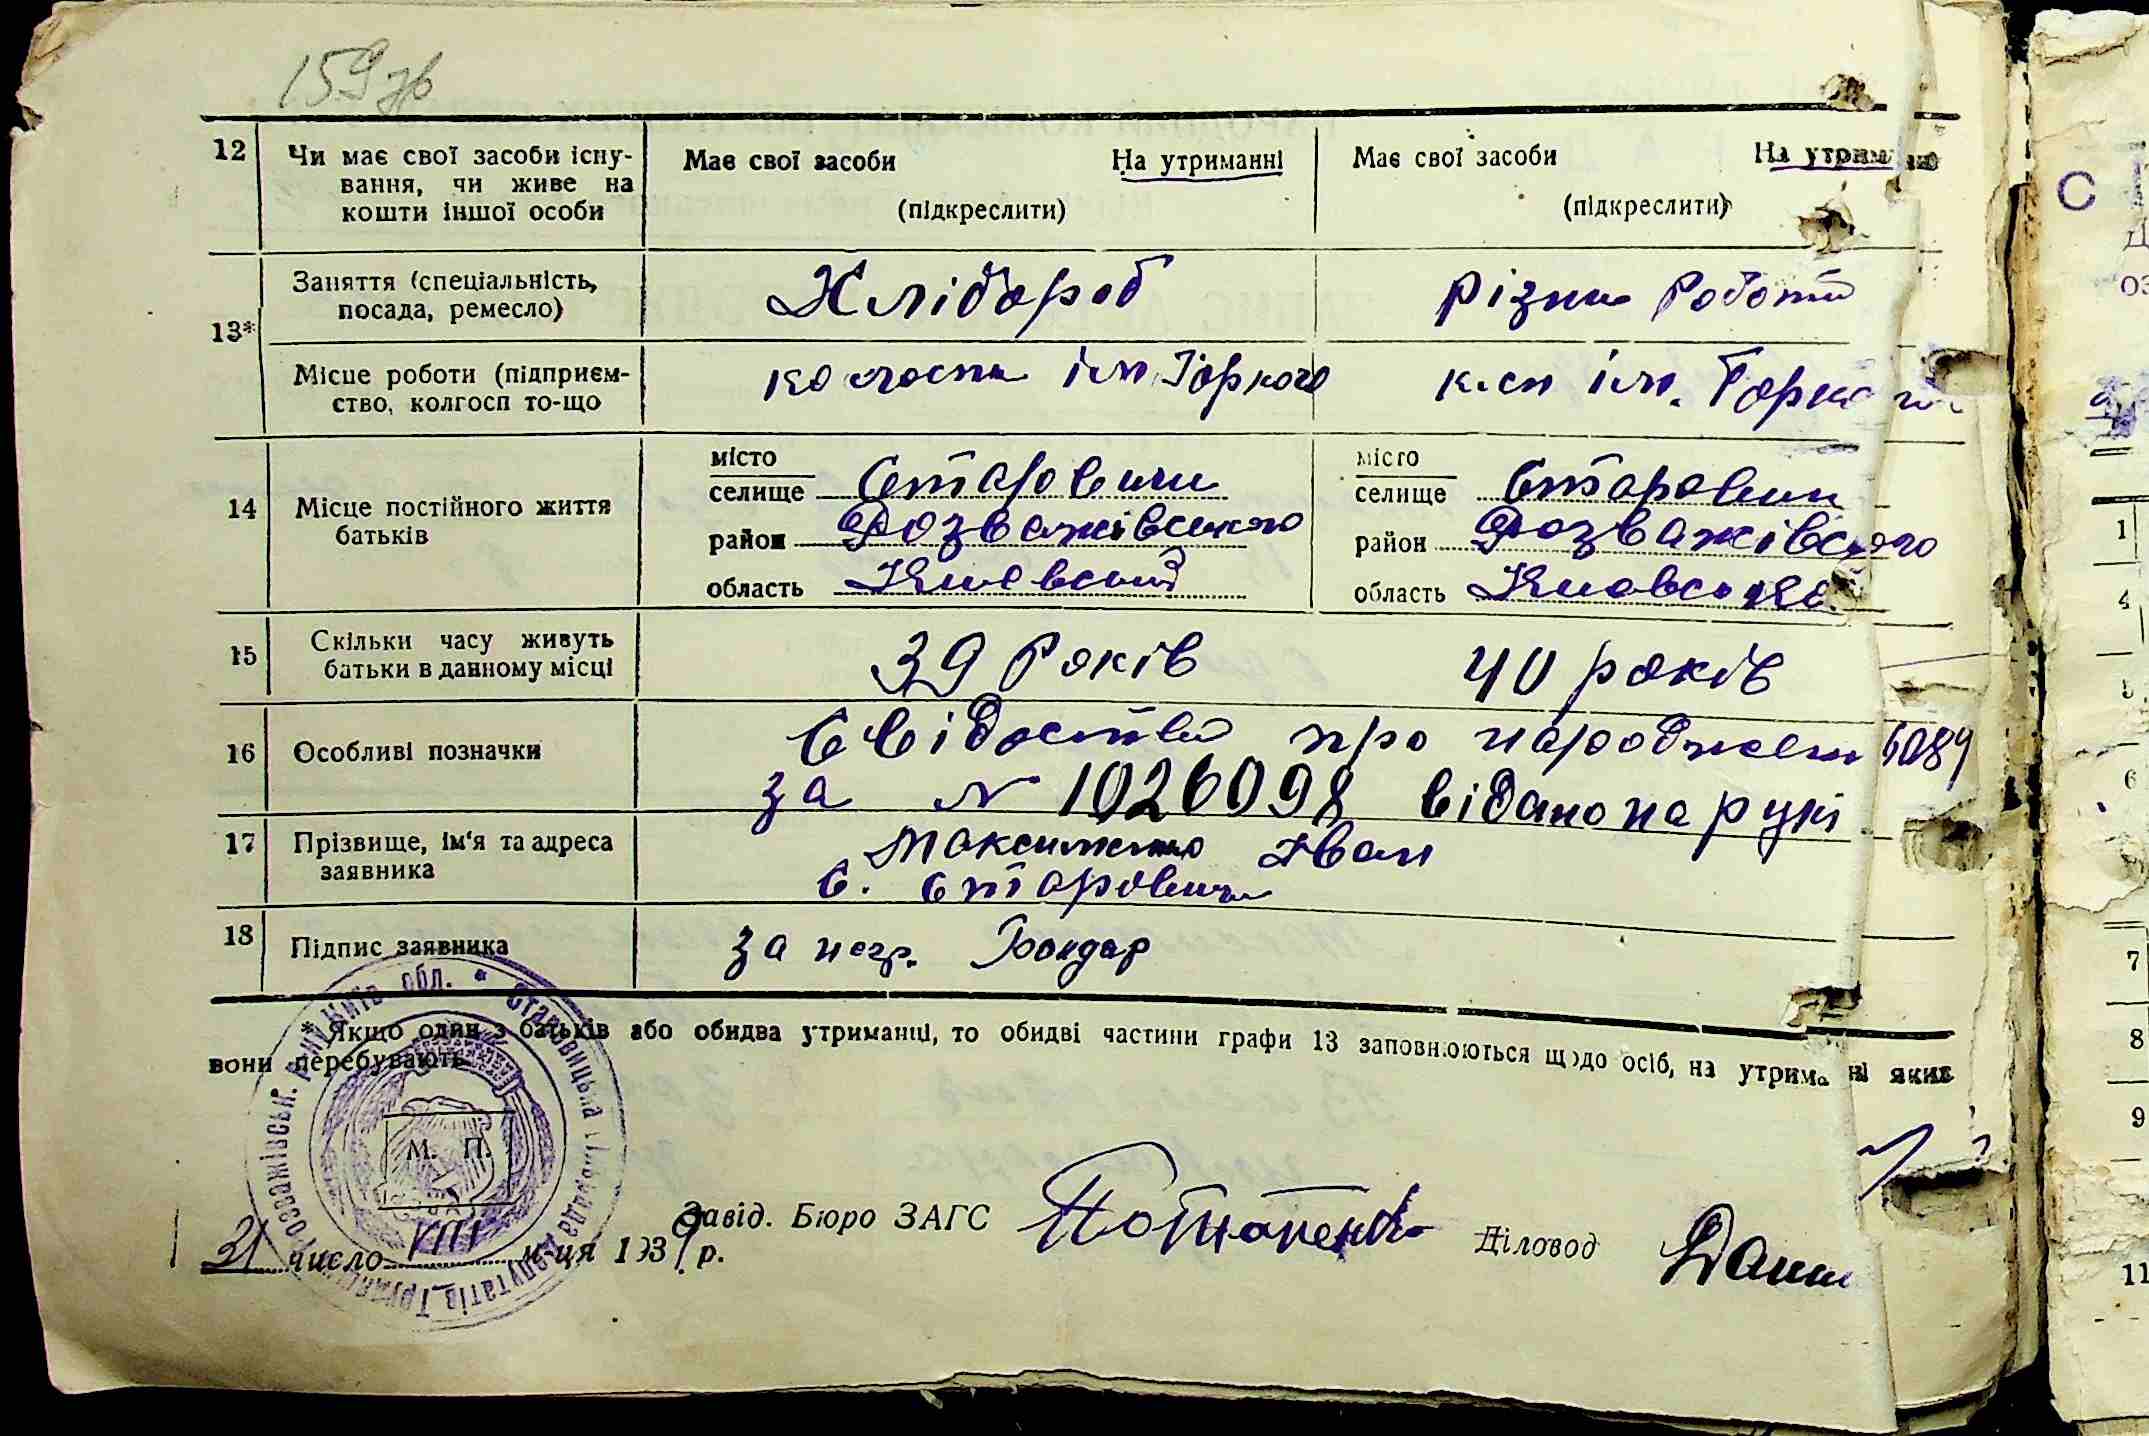 159 зв
12 Чи має свої засоби існу-
вання, чи живе на
кошти іншої особи
Має свої засоби На утриманні
(підкреслити)
Має свої засоби На утрим
(підкреслити)
13* Заняття (спеціальність,
посада, ремесло)
Хлібороб
Різни роботи
Місце роботи (підприєм-
ство, колгосп то-що
колгосп ім. Горкого
к-сп ім. Горкого
14 Місце постійного життя
батьків
місто
селище Старовичи
район Розважівського
область Київський
місто
селище Старовичи
район Розважівського
область Київської
15 Скільки часу живуть
батьки в данному місці
39 років
40 років
16 Особливі позначки
Свідоство про народжен
за № 1026098 відано на рукі
17 Прізвище, ім'я та адреса
заявника
Максименко Іван
с. Старовичи
18 Підпис заявника
за негр. Бондар
* Якщо один з батьків або обидва утриманці, то обидві частини графи 13 заповнюються щодо осіб, на утрима ні яких
вони перебувають
М. П.
Розважівськ. Київ обл. * Старовицька сільрада Депутатів Трудящих
Завід. Бюро ЗАГС Потапенко Діловод
31 число VIII м-ця 1939 р.
С
1
4
5
6
7
8
9
11